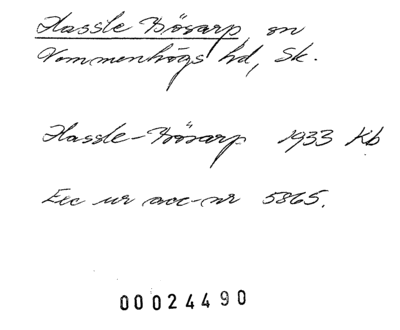 Hassle Bösarp, sn
Vemmenhögs hd, Sk.
Hassle-Bösarp 1933 Kb
Exc ur acc-nr 5865.
00024490